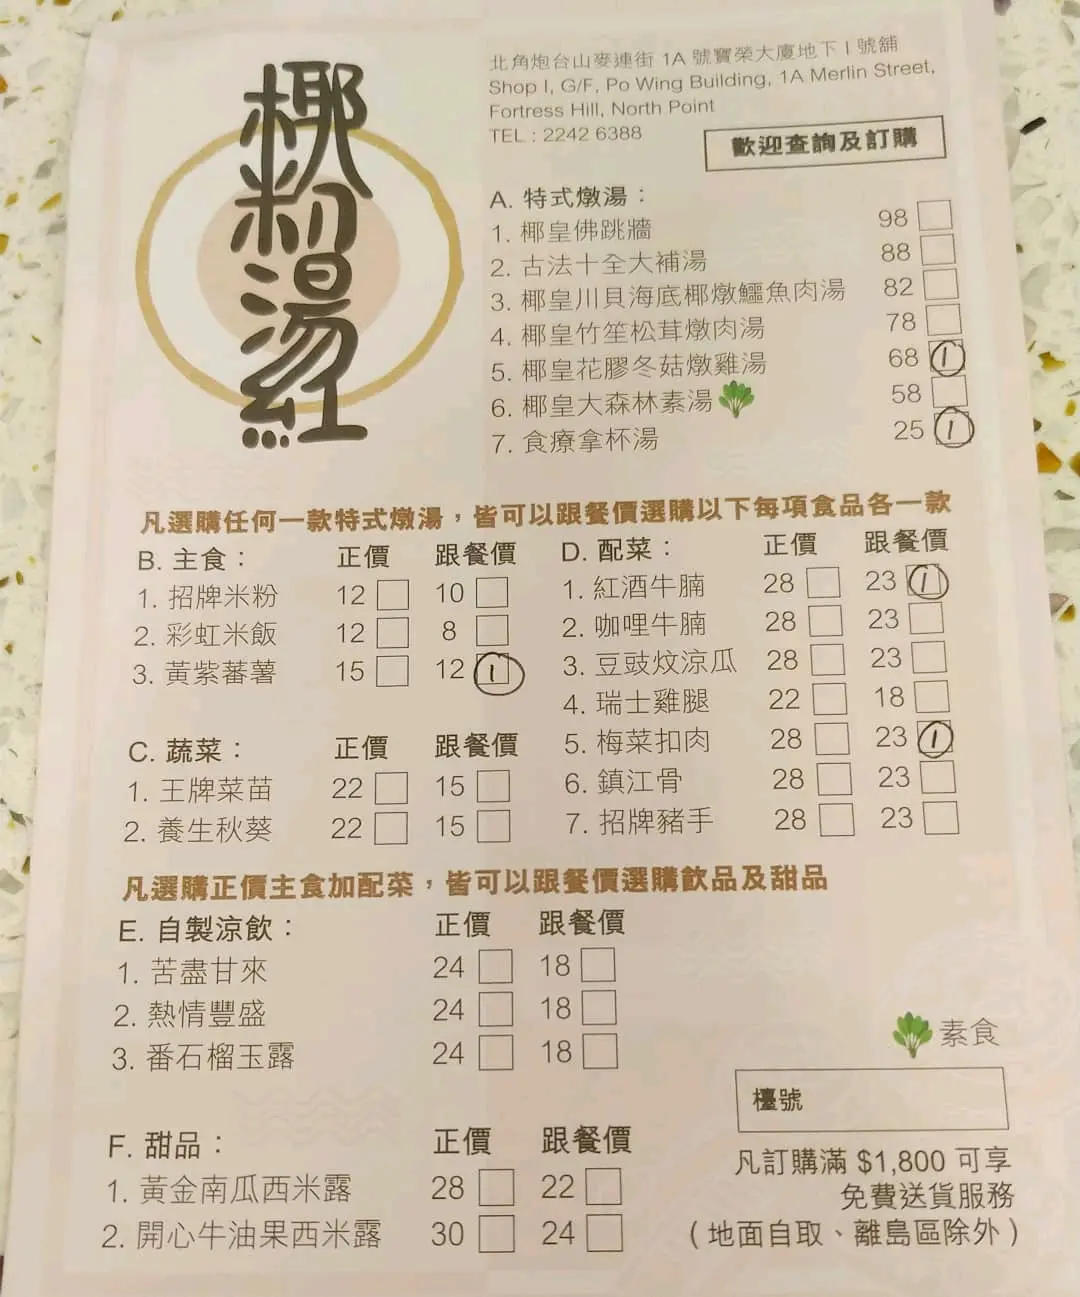 椰粉湯紅
北角炮台山麥連街 1A 號寶榮大廈地下 I 號舖
Shop I, G/F, Po Wing Building, 1A Merlin Street,
Fortress Hill, North Point
TEL : 2242 6388
歡迎查詢及訂購
A. 特式燉湯：
1. 椰皇佛跳牆 98
2. 古法十全大補湯 88
3. 椰皇川貝海底椰燉鱷魚肉湯 82
4. 椰皇竹笙松茸燉肉湯 78
5. 椰皇花膠冬菇燉雞湯 68 1
6. 椰皇大森林素湯 58
7. 食療拿杯湯 25 1
凡選購任何一款特式燉湯，皆可以跟餐價選購以下每項食品各一款
B. 主食： 正價 跟餐價
1. 招牌米粉 12 10
2. 彩虹米飯 12 8
3. 黃紫蕃薯 15 12 1
C. 蔬菜： 正價 跟餐價
1. 王牌菜苗 22 15
2. 養生秋葵 22 15
D. 配菜： 正價 跟餐價
1. 紅酒牛腩 28 23 1
2. 咖哩牛腩 28 23
3. 豆豉炆涼瓜 28 23
4. 瑞士雞腿 22 18
5. 梅菜扣肉 28 23 1
6. 鎮江骨 28 23
7. 招牌豬手 28 23
凡選購正價主食加配菜，皆可以跟餐價選購飲品及甜品
E. 自製涼飲： 正價 跟餐價
1. 苦盡甘來 24 18
2. 熱情豐盛 24 18
3. 番石榴玉露 24 18
F. 甜品： 正價 跟餐價
1. 黃金南瓜西米露 28 22
2. 開心牛油果西米露 30 24
素食
檯號
凡訂購滿 $1,800 可享
免費送貨服務
（地面自取、離島區除外）